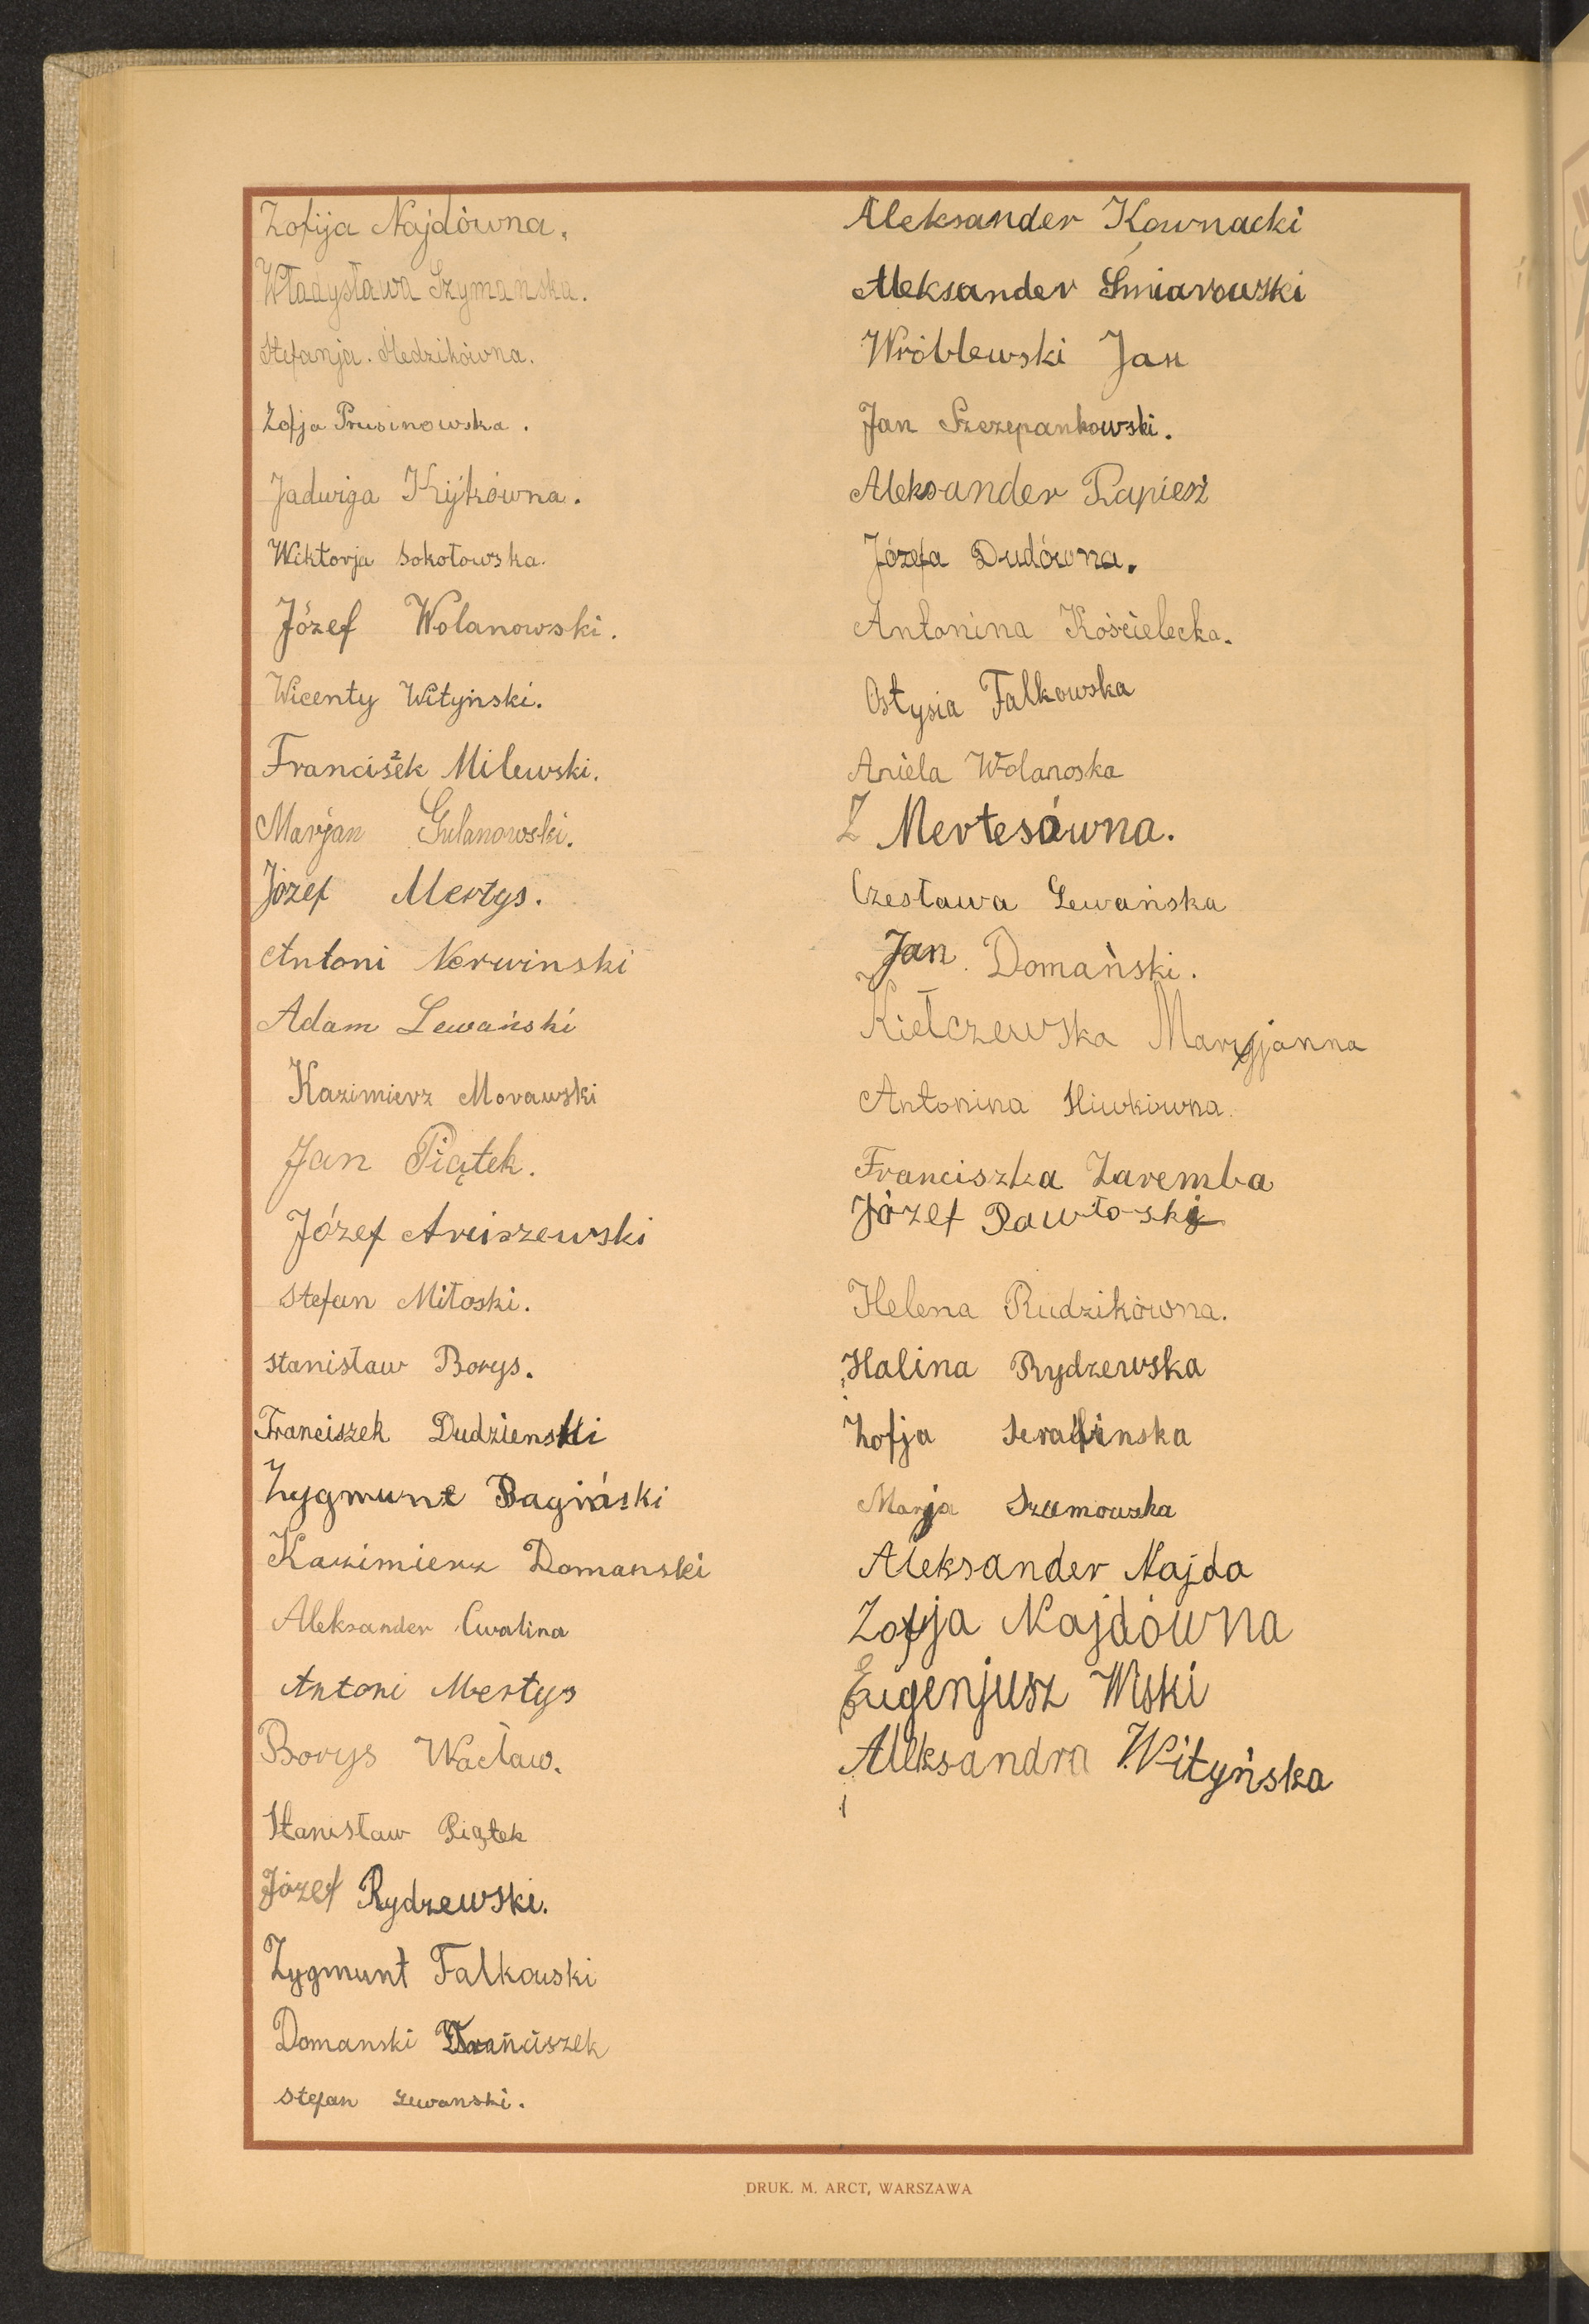 Zofija Najdówna.
Władysława Szymańska.
Stefanja. Śledzikówna.
Zofja Prusinowska.
Jadwiga Kijkówna.
Wiktorja Sokołowska.
Józef Wolanowski.
Wicenty Wityński.
Franciszek Milewski.
Marjan Gulanowski.
Józef Mertys.
Antoni Nerwinski
Adam Lewański
Kazimierz Morawski
Jan Piątek.
Józef Arciszewski
Stefan Miłoski.
Stanisław Borys.
Franciszek Dudzienski
Zygmunt Bagiński
Kazimierz Domanski
Aleksander Cwalina
Antoni Mertys
Borys Wacław.
Stanisław Piątek
Józef Rydzewski.
Zygmunt Falkowski
Domanski Franciszek
Stefan Lewanski.
Aleksander Kownacki
Aleksander Śmiarowski
Wróblewski Jan
Jan Szczepankowski.
Aleksander Rapiesz
Józefa Dudówna.
Antonina Kościelecka.
Ostysia Falkowska
Aniela Wolanoska
Z Mertesówna.
Czesława Lewańska
Jan Domański.
Kiełczewska Maryjanna
Antonina Śliwkówna.
Franciszka Zaremba
Józef Pawłoski
Helena Rudzikówna.
Halina Rydzewska
Zofja Serafinska
Marja Szumowska
Aleksander Najda
Zofja Najdówna
Eugenjusz Wiski
Aleksandra Wityńska
DRUK. M. ARCT, WARSZAWA